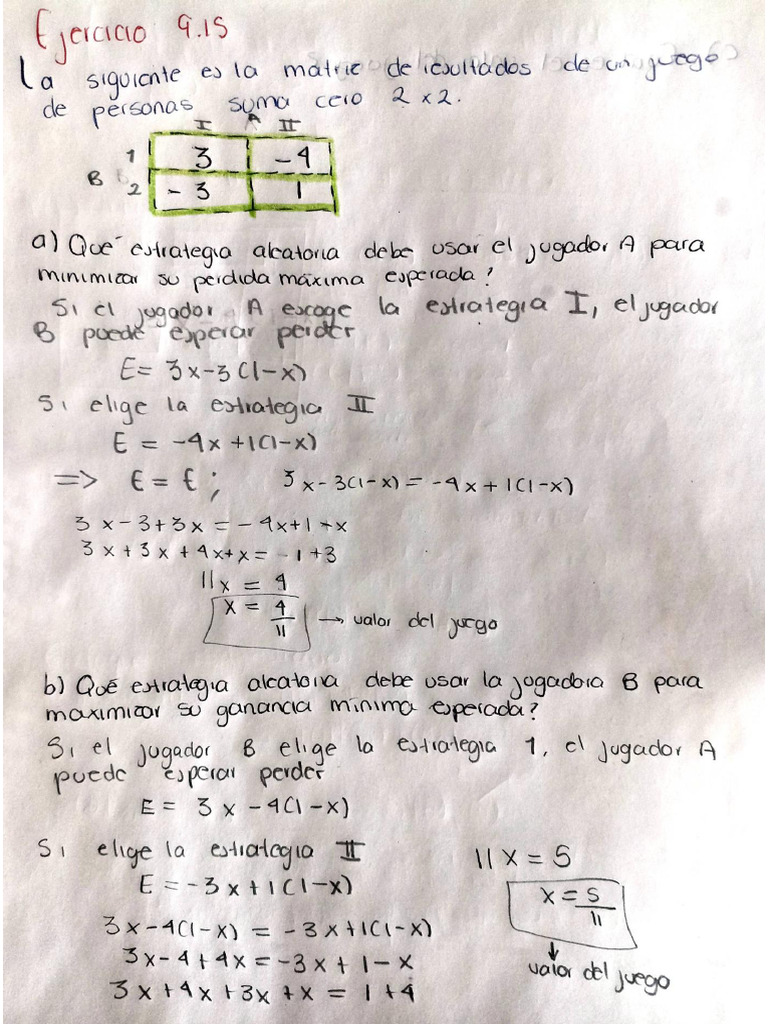 Ejercicio 9.15
La siguiente es la matriz de resultados de un juego
de personas suma cero 2x2.
I A II
1 3 -4
B
2 -3 1
a) Qué estrategia aleatoria debe usar el jugador A para
minimizar su perdida máxima esperada?
Si el jugador A escoge la estrategia I, el jugador
B puede esperar perder
E= 3x-3(1-x)
Si elige la estrategia II
E = -4x+1(1-x)
=> E = E; 3x-3(1-x) = -4x+1(1-x)
3x-3+3x = -4x+1-x
3x+3x+4x+x = -1+3
11x = 4
x = 4/11 → valor del juego
b) Qué estrategia aleatoria debe usar la jugadora B para
maximizar su ganancia mínima esperada?
Si el jugador B elige la estrategia 1, el jugador A
puede esperar perder
E = 3x-4(1-x)
Si elige la estrategia II
E = -3x+1(1-x)
3x-4(1-x) = -3x+1(1-x)
3x-4+4x = -3x+1-x
3x+4x+3x+x = 1+4
11x = 5
x = 5/11
↓
valor del juego